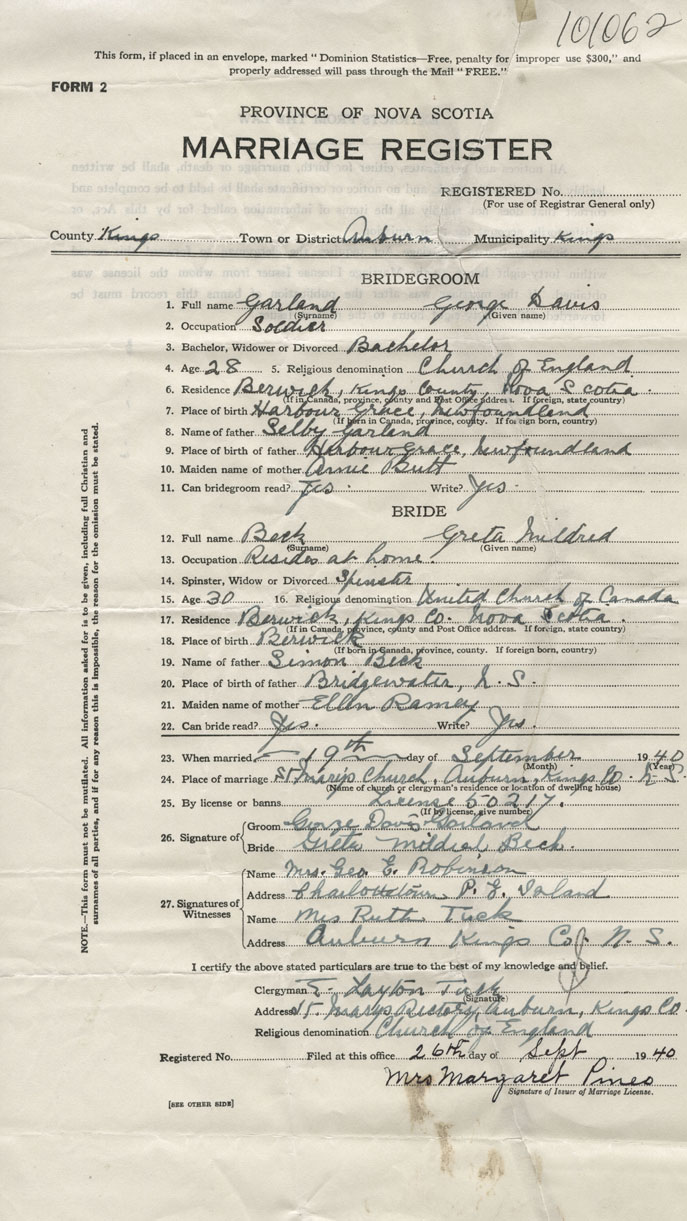 101062
This form, if placed in an envelope, marked "Dominion Statistics—Free, penalty for improper use $300," and
properly addressed will pass through the Mail "FREE."
FORM 2
PROVINCE OF NOVA SCOTIA
MARRIAGE REGISTER
REGISTERED No.
(For use of Registrar General only)
County Kings Town or District Auburn Municipality Kings
BRIDEGROOM
1. Full name Garland George Davis
(Surname) (Given name)
2. Occupation Soldier
3. Bachelor, Widower or Divorced Bachelor
4. Age 28 5. Religious denomination Church of England
6. Residence Berwick, Kings County, Nova Scotia.
(If in Canada, province, county and Post Office address. If foreign, state country)
7. Place of birth Harbour Grace, Newfoundland
(If born in Canada, province, county. If foreign born, country)
8. Name of father Selby Garland
9. Place of birth of father Harbour Grace, Newfoundland
10. Maiden name of mother Annie Butt
11. Can bridegroom read? Yes. Write? Yes.
BRIDE
12. Full name Beck Greta Mildred
(Surname) (Given name)
13. Occupation Resides at home.
14. Spinster, Widow or Divorced Spinster
15. Age 30 16. Religious denomination United Church of Canada
17. Residence Berwick, Kings Co. Nova Scotia.
(If in Canada, province, county and Post Office address. If foreign, state country)
18. Place of birth Berwick
(If born in Canada, province, county. If foreign born, country)
19. Name of father Simon Beck
20. Place of birth of father Bridgewater, N. S.
21. Maiden name of mother Ellen Ramey
22. Can bride read? Yes. Write? Yes.
23. When married 19th day of September 1940
(Month) (Year)
24. Place of marriage St. Mary's Church, Auburn, Kings Co. N. S.
(Name of church or clergyman's residence or location of dwelling house)
25. By license or banns License 50217.
(If by license, give number)
26. Signature of Groom George Davis Garland
Bride Greta Mildred Beck.
27. Signatures of Witnesses Name Mrs. Geo. E. Robinson
Address Charlottetown P. E. Island
Name Mrs Ruth Tuck
Address Auburn Kings Co. N. S.
I certify the above stated particulars are true to the best of my knowledge and belief.
Clergyman E. Layton Tuck
(Signature)
Address St. Marys Rectory, Auburn, Kings Co.
Religious denomination Church of England
Registered No. Filed at this office 26th day of Sept 1940
Mrs Margaret Pineo
Signature of Issuer of Marriage License.
[SEE OTHER SIDE]
NOTE.—This form must not be mutilated. All information asked for is to be given, including full Christian and
surnames of all parties, and if for any reason this is impossible, the reason for the omission must be stated.